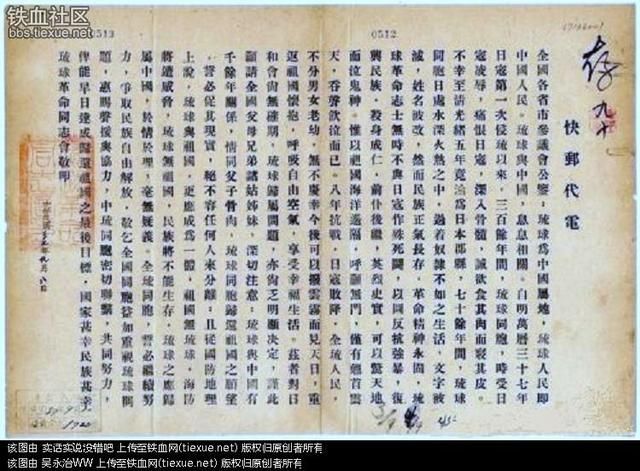 铁血社区
bbs.tiexue.net
0513
0512
快郵代電
全國各省市參議會公鑒：琉球為中國屬地，琉球人民即
中國人民。琉球與中國，息息相關。自明萬曆三十七年
日寇第一次侵琉以來，三百餘年間，琉球同胞，時受日
寇凌辱，痛恨日寇，深入骨髓，誠欲食其肉而寢其皮。
不幸至清光緒五年竟淪為日本郡縣，七十餘年間，琉球
同胞日處水深火熱之中，過着奴隸不如之生活，文字被
滅，姓名被改，然而民族正氣長存，革命精神永固，琉
球革命志士無時不與日寇作殊死鬪，以圖反抗強暴，復
興民族，殺身成仁，前仆後繼，英烈史實，可以驚天地
而泣鬼神。惟以琉球與祖國海洋遠隔，呼籲無門，僅有翹首雲
天，吞聲飲泣而已。八年抗戰，日寇敗降，全琉人民，
不分男女老幼，無不慶幸今後可以撥雲霧而見天日，重
返祖國懷抱，呼吸自由空氣，享受幸福生活。茲者對日
和會尚無確期，琉球歸屬問題，亦尚乏明顯決定，謹此
籲請全國父母兄弟諸姑姊妹，深切注意：琉球與中國有
千餘年關係，情同父子骨肉，琉球同胞歸還祖國之願望
，誓必促其現實，絕不容任何人來分離；且從國防地理
上說，琉球與祖國，更應成為一體，祖國無琉球，海防
將遭威脅，琉球無祖國，民族將不能生存，琉球之應歸
屬中國，於情於理，毫無疑義。全琉同胞，誓必繼續努
力，爭取民族自由解放，敬乞全國同胞益加重視琉球問
題，惠賜聲援與協力，中琉同胞密切聯繫，共同努力，
俾能早日達成歸還祖國之最後目標，國家甚幸民族甚幸。
琉球革命同志會敬叩
该图由 实话实说没错吧 上传至铁血网(tiexue.net) 版权归原创者所有
该图由 吴永治WW 上传至铁血网(tiexue.net) 版权归原创者所有